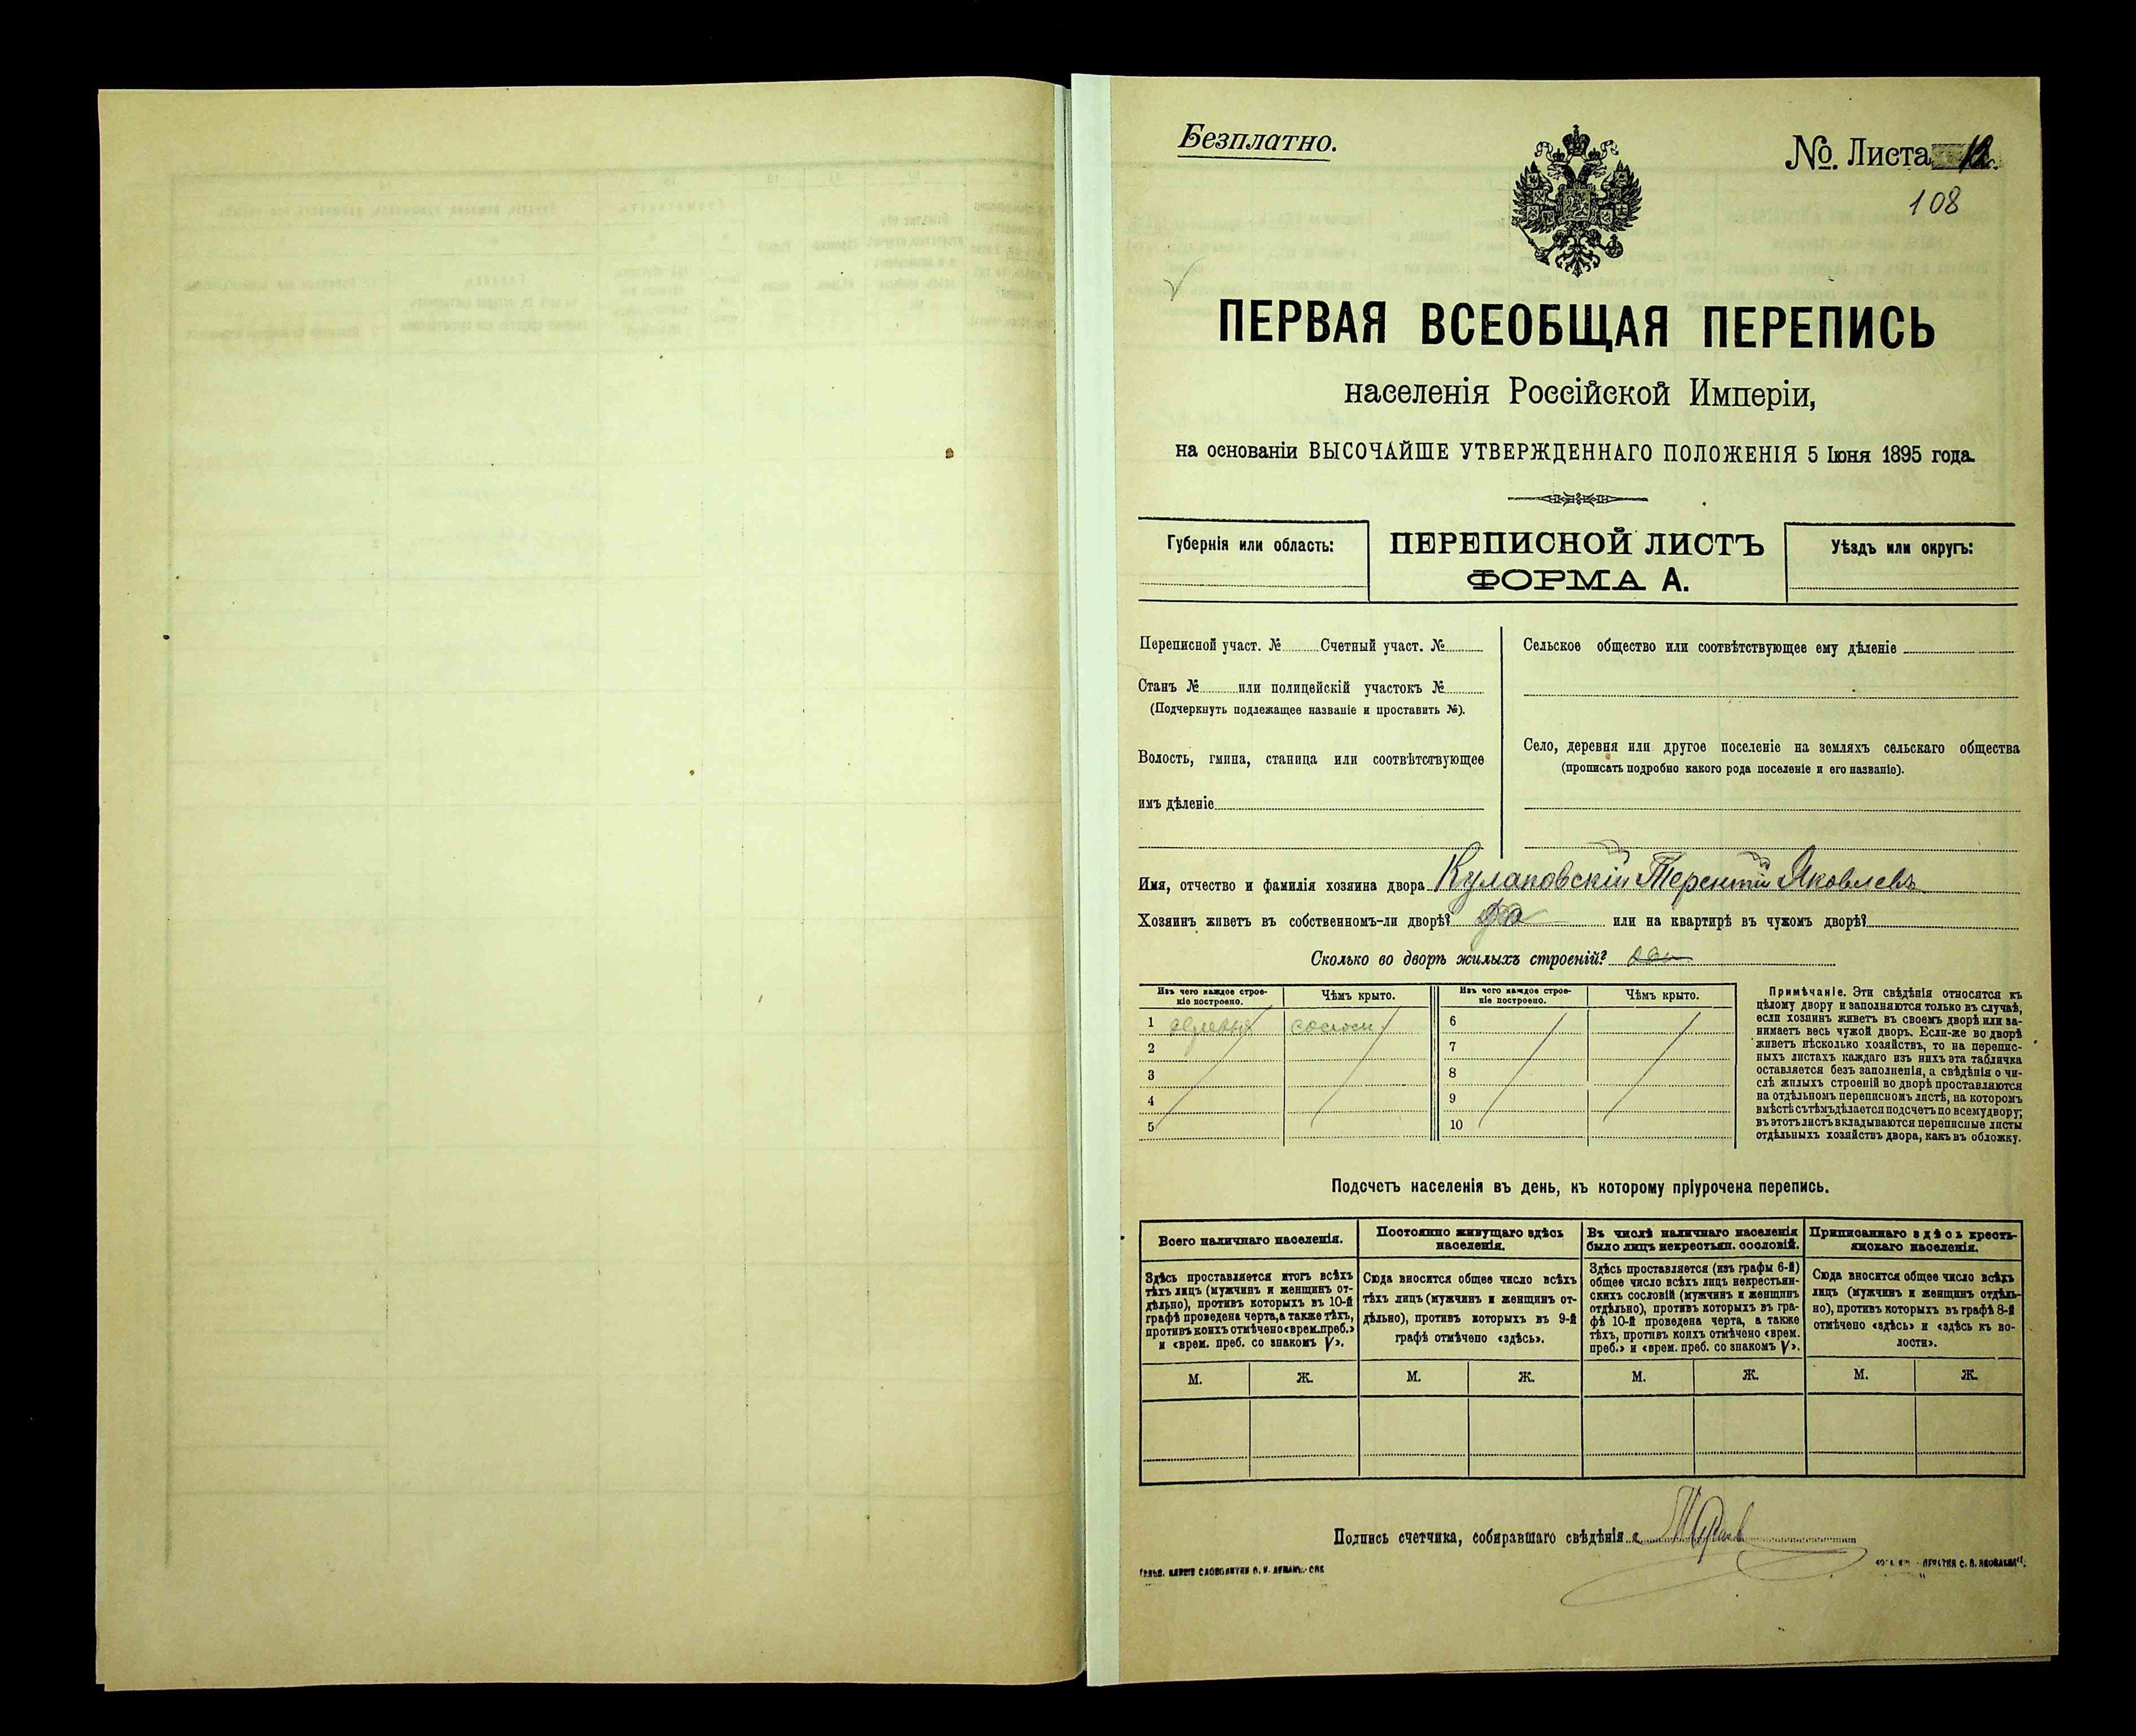 Безплатно.
№. Листа 12.
108
ПЕРВАЯ ВСЕОБЩАЯ ПЕРЕПИСЬ
населенія Россійской Имперіи,
на основаніи ВЫСОЧАЙШЕ УТВЕРЖДЕННАГО ПОЛОЖЕНІЯ 5 Іюня 1895 года.
Губернія или область:
ПЕРЕПИСНОЙ ЛИСТЪ
ФОРМА А.
Уѣздъ или округъ:
Переписной участ. № Счетный участ. №
Станъ № или полицейскій участокъ №
(Подчеркнуть подлежащее названіе и проставить №).
Волость, гмина, станица или соотвѣтствующее
имъ дѣленіе
Сельское общество или соотвѣтствующее ему дѣленіе
Село, деревня или другое поселеніе на земляхъ сельскаго общества
(прописать подробно какого рода поселеніе и его названіе).
Имя, отчество и фамилія хозяина двора Кулаковскій Терентій Яковлевъ
Хозяинъ живетъ въ собственномъ-ли дворѣ? да или на квартирѣ въ чужомъ дворѣ?
Сколько во дворѣ жилыхъ строеній?
Изъ чего каждое строе-
ніе построено.
Чѣмъ крыто.
Изъ чего каждое строе-
ніе построено.
Чѣмъ крыто.
1
2
3
4
5
6
7
8
9
10
Примѣчаніе. Эти свѣдѣнія относятся къ
цѣлому двору и заполняются только въ случаѣ,
если хозяинъ живетъ въ своемъ дворѣ или за-
нимаетъ весь чужой дворъ. Если-же во дворѣ
живетъ нѣсколько хозяйствъ, то на перепис-
ныхъ листахъ каждаго изъ нихъ эта табличка
оставляется безъ заполненія, а свѣдѣнія о чи-
слѣ жилыхъ строеній во дворѣ проставляются
на отдѣльномъ переписномъ листѣ, на которомъ
вмѣстѣ съ тѣмъ дѣлается подсчетъ по всему двору;
въ этотъ листъ вкладываются переписные листы
отдѣльныхъ хозяйствъ двора, какъ въ обложку.
Подсчетъ населенія въ день, къ которому пріурочена перепись.
Всего наличнаго населенія.
Постоянно живущаго здѣсь
населенія.
Въ числѣ наличнаго населенія
было лицъ некрестьян. сословій.
Приписаннаго здѣсь кресть-
янскаго населенія.
Здѣсь проставляется итогъ всѣхъ
тѣхъ лицъ (мужчинъ и женщинъ от-
дѣльно), противъ которыхъ въ 10-й
графѣ проведена черта, а также тѣхъ,
противъ коихъ отмѣчено «врем. преб.»
и «врем. преб. со знакомъ V».
Сюда вносится общее число всѣхъ
тѣхъ лицъ (мужчинъ и женщинъ от-
дѣльно), противъ которыхъ въ 9-й
графѣ отмѣчено «здѣсь».
Здѣсь проставляется (изъ графы 6-й)
общее число всѣхъ лицъ некрестьян-
скихъ сословій (мужчинъ и женщинъ
отдѣльно), противъ которыхъ въ гра-
фѣ 10-й проведена черта, а также
тѣхъ, противъ коихъ отмѣчено «врем.
преб.» и «врем. преб. со знакомъ V».
Сюда вносится общее число всѣхъ
лицъ (мужчинъ и женщинъ отдѣль-
но), противъ которыхъ въ графѣ 8-й
отмѣчено «здѣсь» и «здѣсь къ во-
лости».
М. Ж. М. Ж. М. Ж. М. Ж.
Подпись счетчика, собиравшаго свѣдѣнія